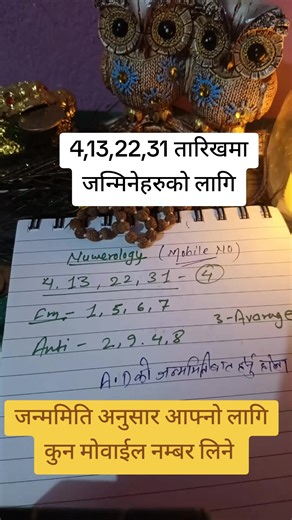 4,13,22,31 तारिखमा
जन्मिनेहरुको लागि
Numerology (Mobile NO)
4, 13, 22, 31 - 4
1, 5, 6, 7
3 - Avarage
Anti - 2, 9, 4, 8
A.D को जन्ममिति
जन्ममिति अनुसार आफ्नो लागि
कुन मोवाईल नम्बर लिने